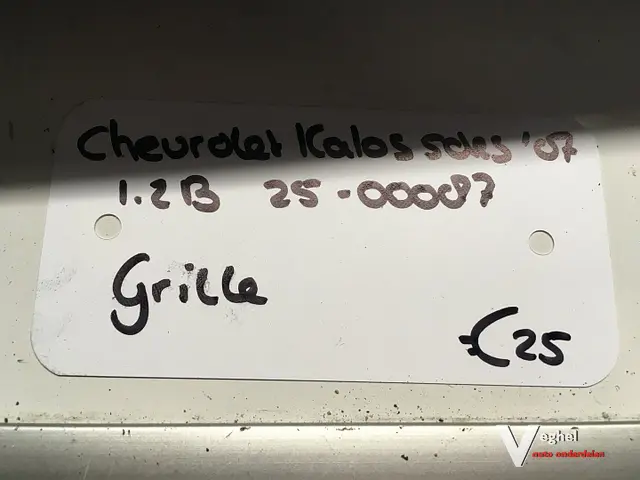 Chevrolet Kalos 5drs '07
1.2B 25-00087
Grille
€25
Veghel
auto onderdelen